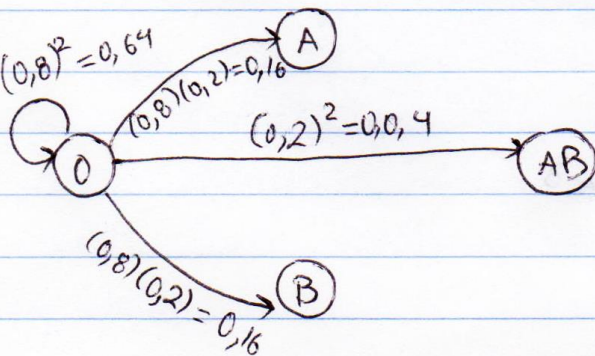 (0,8)² = 0,64
A
(0,8)(0,2) = 0,16
(0,2)² = 0,0,4
O
AB
(0,8)(0,2) = 0,16
B